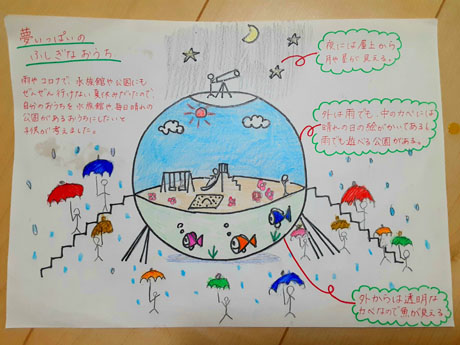 夢いっぱいの
ふしぎなおうち
雨やコロナで、水族館や公園にも
ぜんぜん行けない夏休みだったので、
自分のおうちを水族館や毎日晴れの
公園があるおうちにしたいと
子供が考えました。
夜には屋上から
月や星が見える。
外は雨でも、中のカベには
晴れの日の絵がかいてあるから
雨でも遊べる公園がある。
外からは透明な
カベなので魚が見える